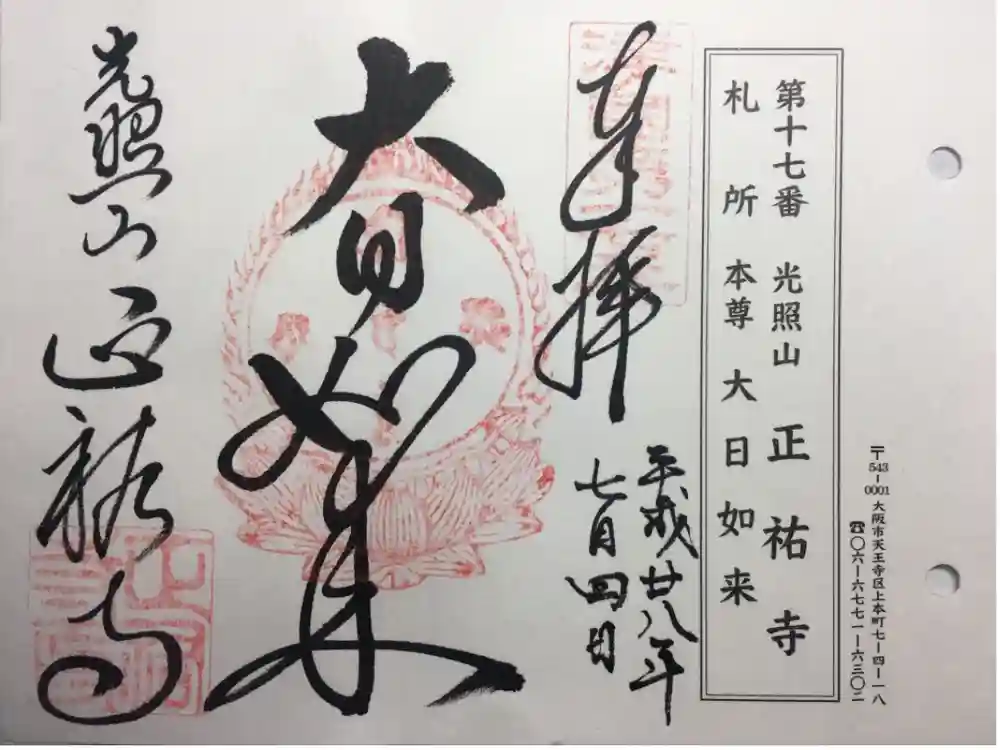 〒543-0001 大阪市天王寺区上本町七-四-一八
☎〇六-六七七一-六三〇二
第十七番 光照山 正祐寺
札所 本尊 大日如来
奉拝
平成廿八年
七月四日
大日如来
光照山 正祐寺